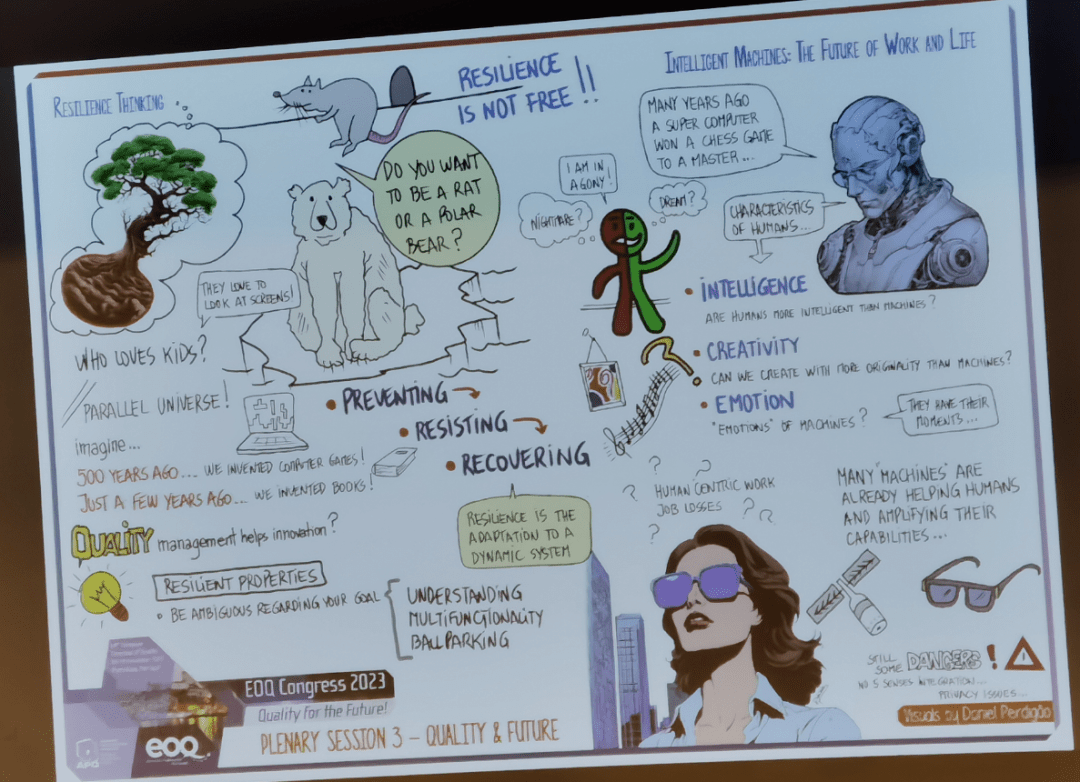 RESILIENCE THINKING
RESILIENCE
IS NOT FREE!!
DO YOU WANT
TO BE A RAT
OR A POLAR
BEAR?
THEY LOVE TO
LOOK AT SCREENS!
WHO LOVES KIDS?
PARALLEL UNIVERSE!
imagine...
500 YEARS AGO.... WE INVENTED COMPUTER GAMES!
JUST A FEW YEARS AGO... WE INVENTED BOOKS!
QUALITY management helps innovation?
RESILIENT PROPERTIES
• BE AMBIGUOUS REGARDING YOUR GOAL
UNDERSTANDING
MULTIFUNCTIONALITY
BALLPARKING
• PREVENTING
• RESISTING
• RECOVERING
RESILIENCE IS THE
ADAPTATION TO A
DYNAMIC SYSTEM
INTELLIGENT MACHINES: THE FUTURE OF WORK AND LIFE
MANY YEARS AGO
A SUPER COMPUTER
WON A CHESS GAME
TO A MASTER...
I AM IN
AGONY!
NIGHTMARE?
DREAM?
CHARACTERISTICS
OF HUMANS...
• INTELLIGENCE
ARE HUMANS MORE INTELLIGENT THAN MACHINES?
?
• CREATIVITY
CAN WE CREATE WITH MORE ORIGINALITY THAN MACHINES?
• EMOTION
"EMOTIONS" OF MACHINES?
THEY HAVE THEIR
MOMENTS...
? ?
? HUMAN CENTRIC WORK
JOB LOSSES ? ?
?
MANY "MACHINES" ARE
ALREADY HELPING HUMANS
AND AMPLIFYING THEIR
CAPABILITIES...
STILL
SOME DANGERS!
NO 5 SENSES INTEGRATION...
PRIVACY ISSUES...
Visuals by Daniel Perdigão
EOQ Congress 2023
Quality for the Future!
PLENARY SESSION 3 – QUALITY & FUTURE
APQ
eoq